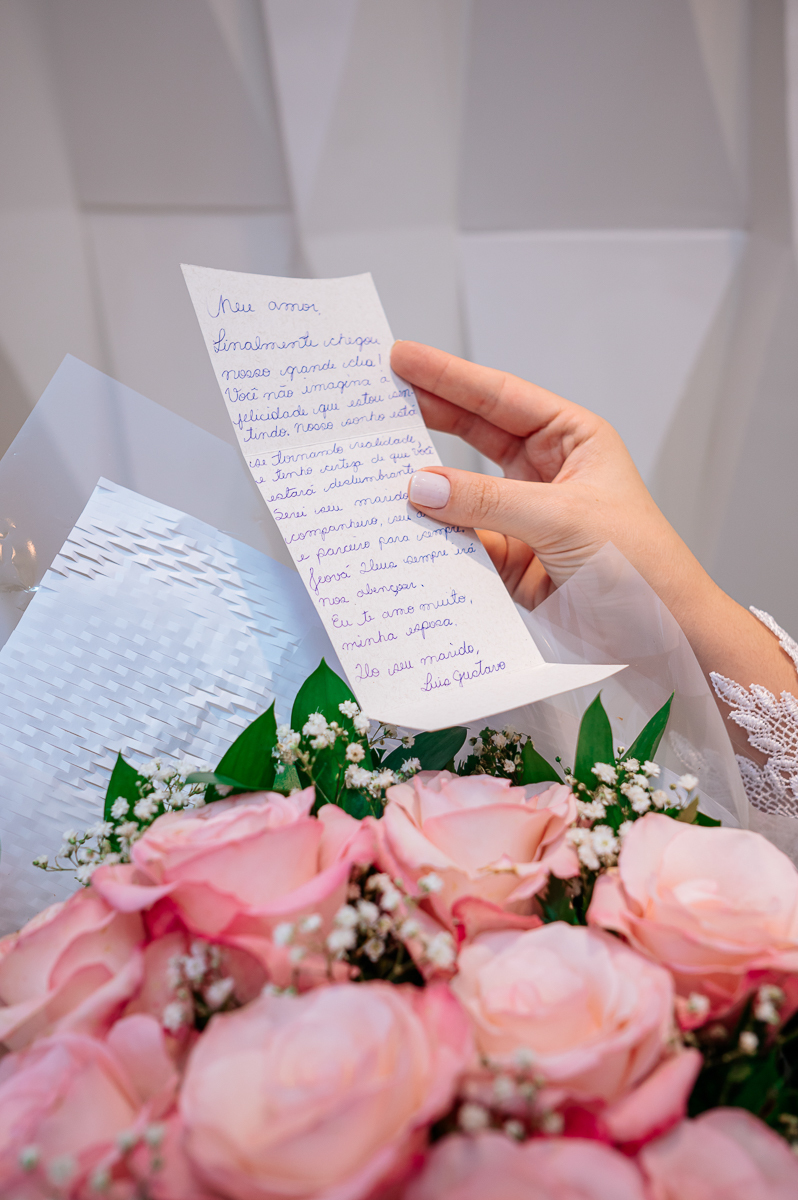 Meu amor,
Finalmente chegou
nosso grande dia!
Você não imagina a
felicidade que estou sen-
tindo. Nosso sonho está
se tornando realidade,
e tenho certeza de que você
estará deslumbrante.
Serei seu marido,
companheiro, seu
e parceiro para sempre.
Jeová Deus sempre irá
nos abençoar.
Eu te amo muito,
minha esposa.
Do seu marido,
Luis Gustavo